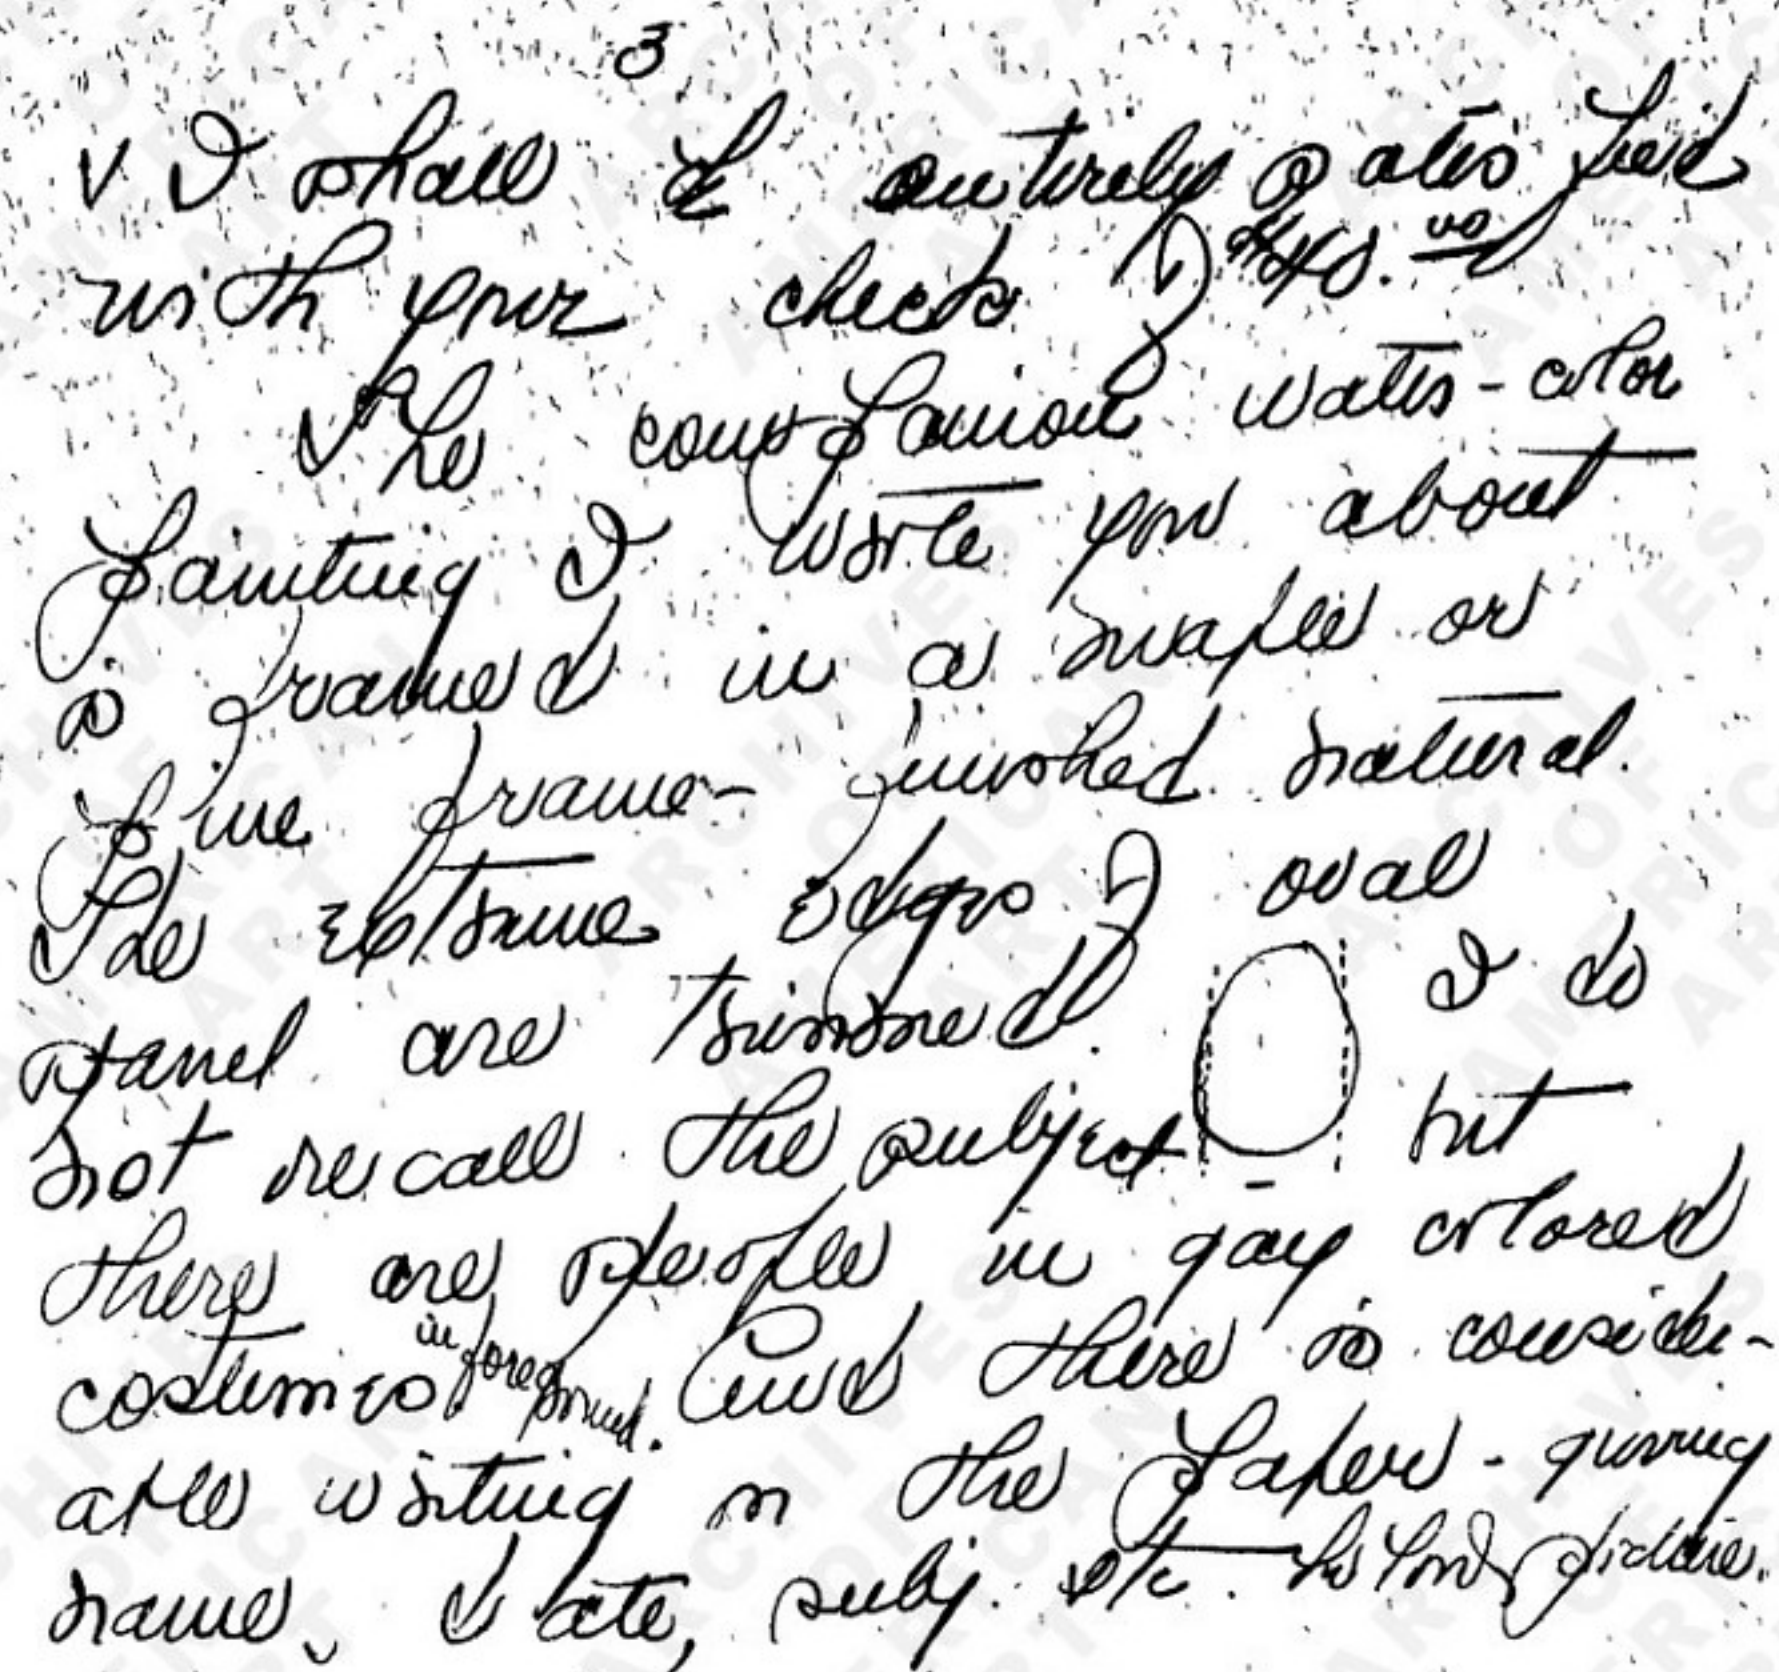 3
& I shall be entirely satisfied
with your check of $40.00
The companion water-color
painting I wrote you about
is framed in a maple or
pine frame - finished natural.
The extreme edges of oval
panel are trimmed. I do
not recall the subject but
there are people in gay colored
costumes in foreground. And there is consider-
able writing on the paper - giving
name, date, subj. etc. below picture.